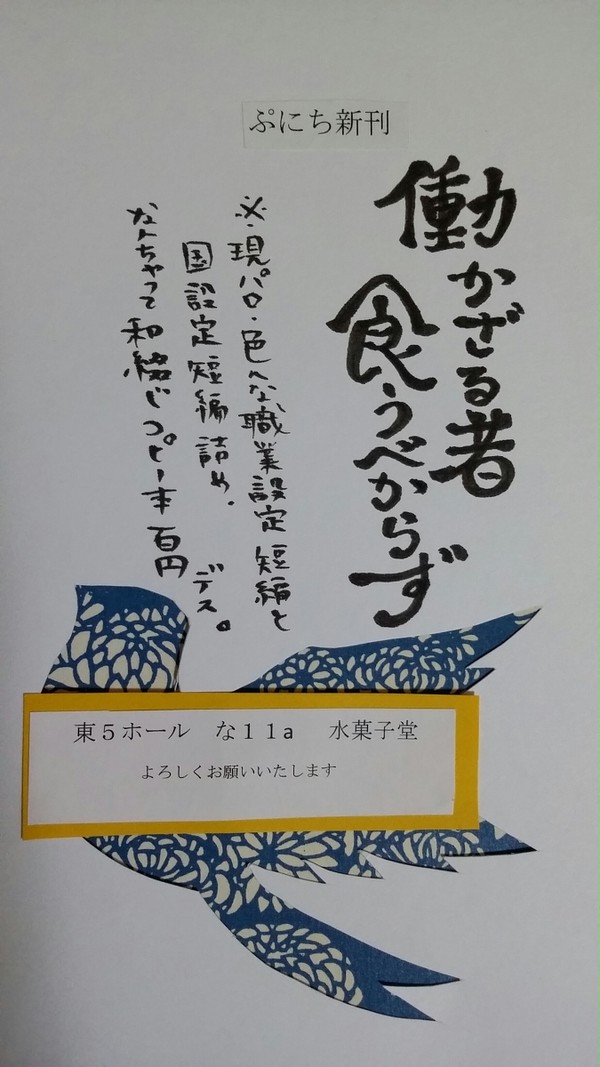 ぷにち新刊
働かざる者
食うべからず
※現パロ・色んな職業設定短編と
国設定短編詰め。
なんちゃって和綴じコピー本 百円
デス。
東5ホール な11a 水菓子堂
よろしくお願いいたします